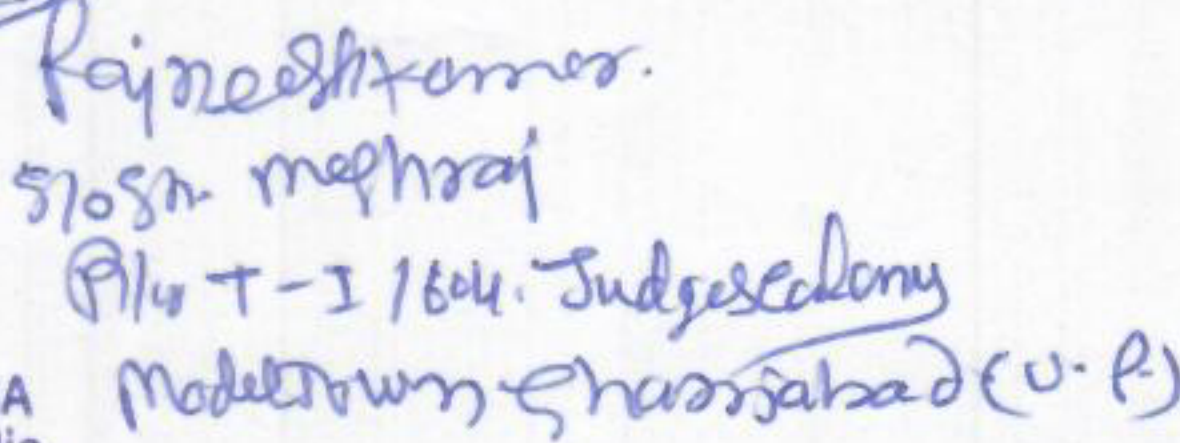 Rajneesh Kumar.
S/o Sh. Meghraj
R/o T-I / 604. Judges Colony
Model Town Ghaziabad (U.P.)
A